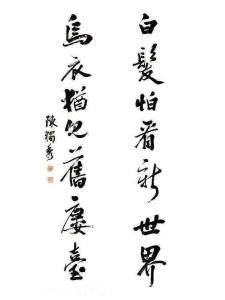 白髮怕看新世界
烏衣猶見舊廔臺
陳獨秀